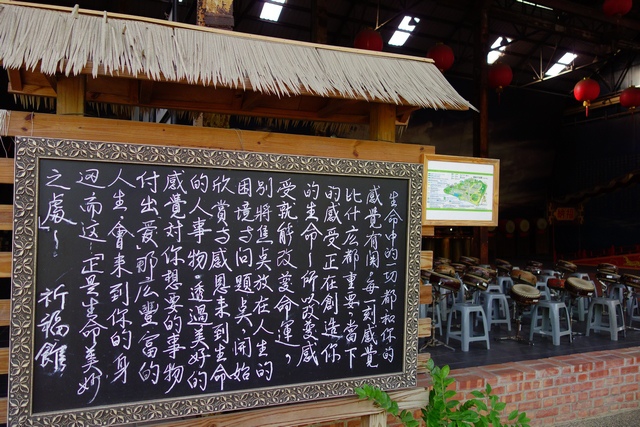 生命中的一切都和你的
感覺有關,每一刻感覺
比什広都重要,當下
的感受正在創造你
的生命~所以改變感
受就能改變命運。
別將焦点放在人生的
困境与問題点,開始
欣賞与感恩來到生命
的人事物,透過美好的
感覺对你想要的事物
付出「愛」那広豐富的
人生,會來到你的身
边,而这一正是生命美妙
之處!~ 祈福館